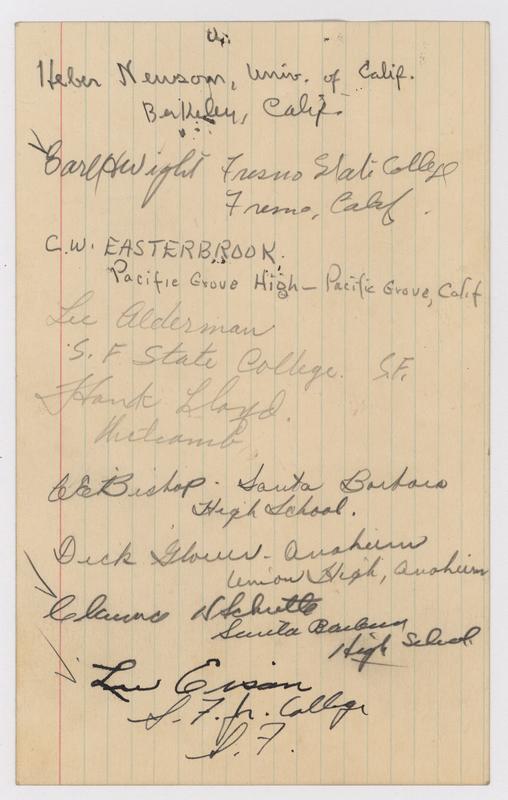 Heber Newsom, Univ. of Calif.
Berkeley, Calif.
Earl H Wight Fresno State College
Fresno, Calif.
C.W. EASTERBROOK.
Pacific Grove High – Pacific Grove, Calif
Lee Alderman
S. F State College. S.F.
Hank Lloyd.
Whitcomb
CE Bishop - Santa Barbara
High School.
Dick Glover - Anaheim
Union High, Anaheim
Clarence Schutte
Santa Barbara
High School
Lou Eisan
S. F. Jr. College
S. F.